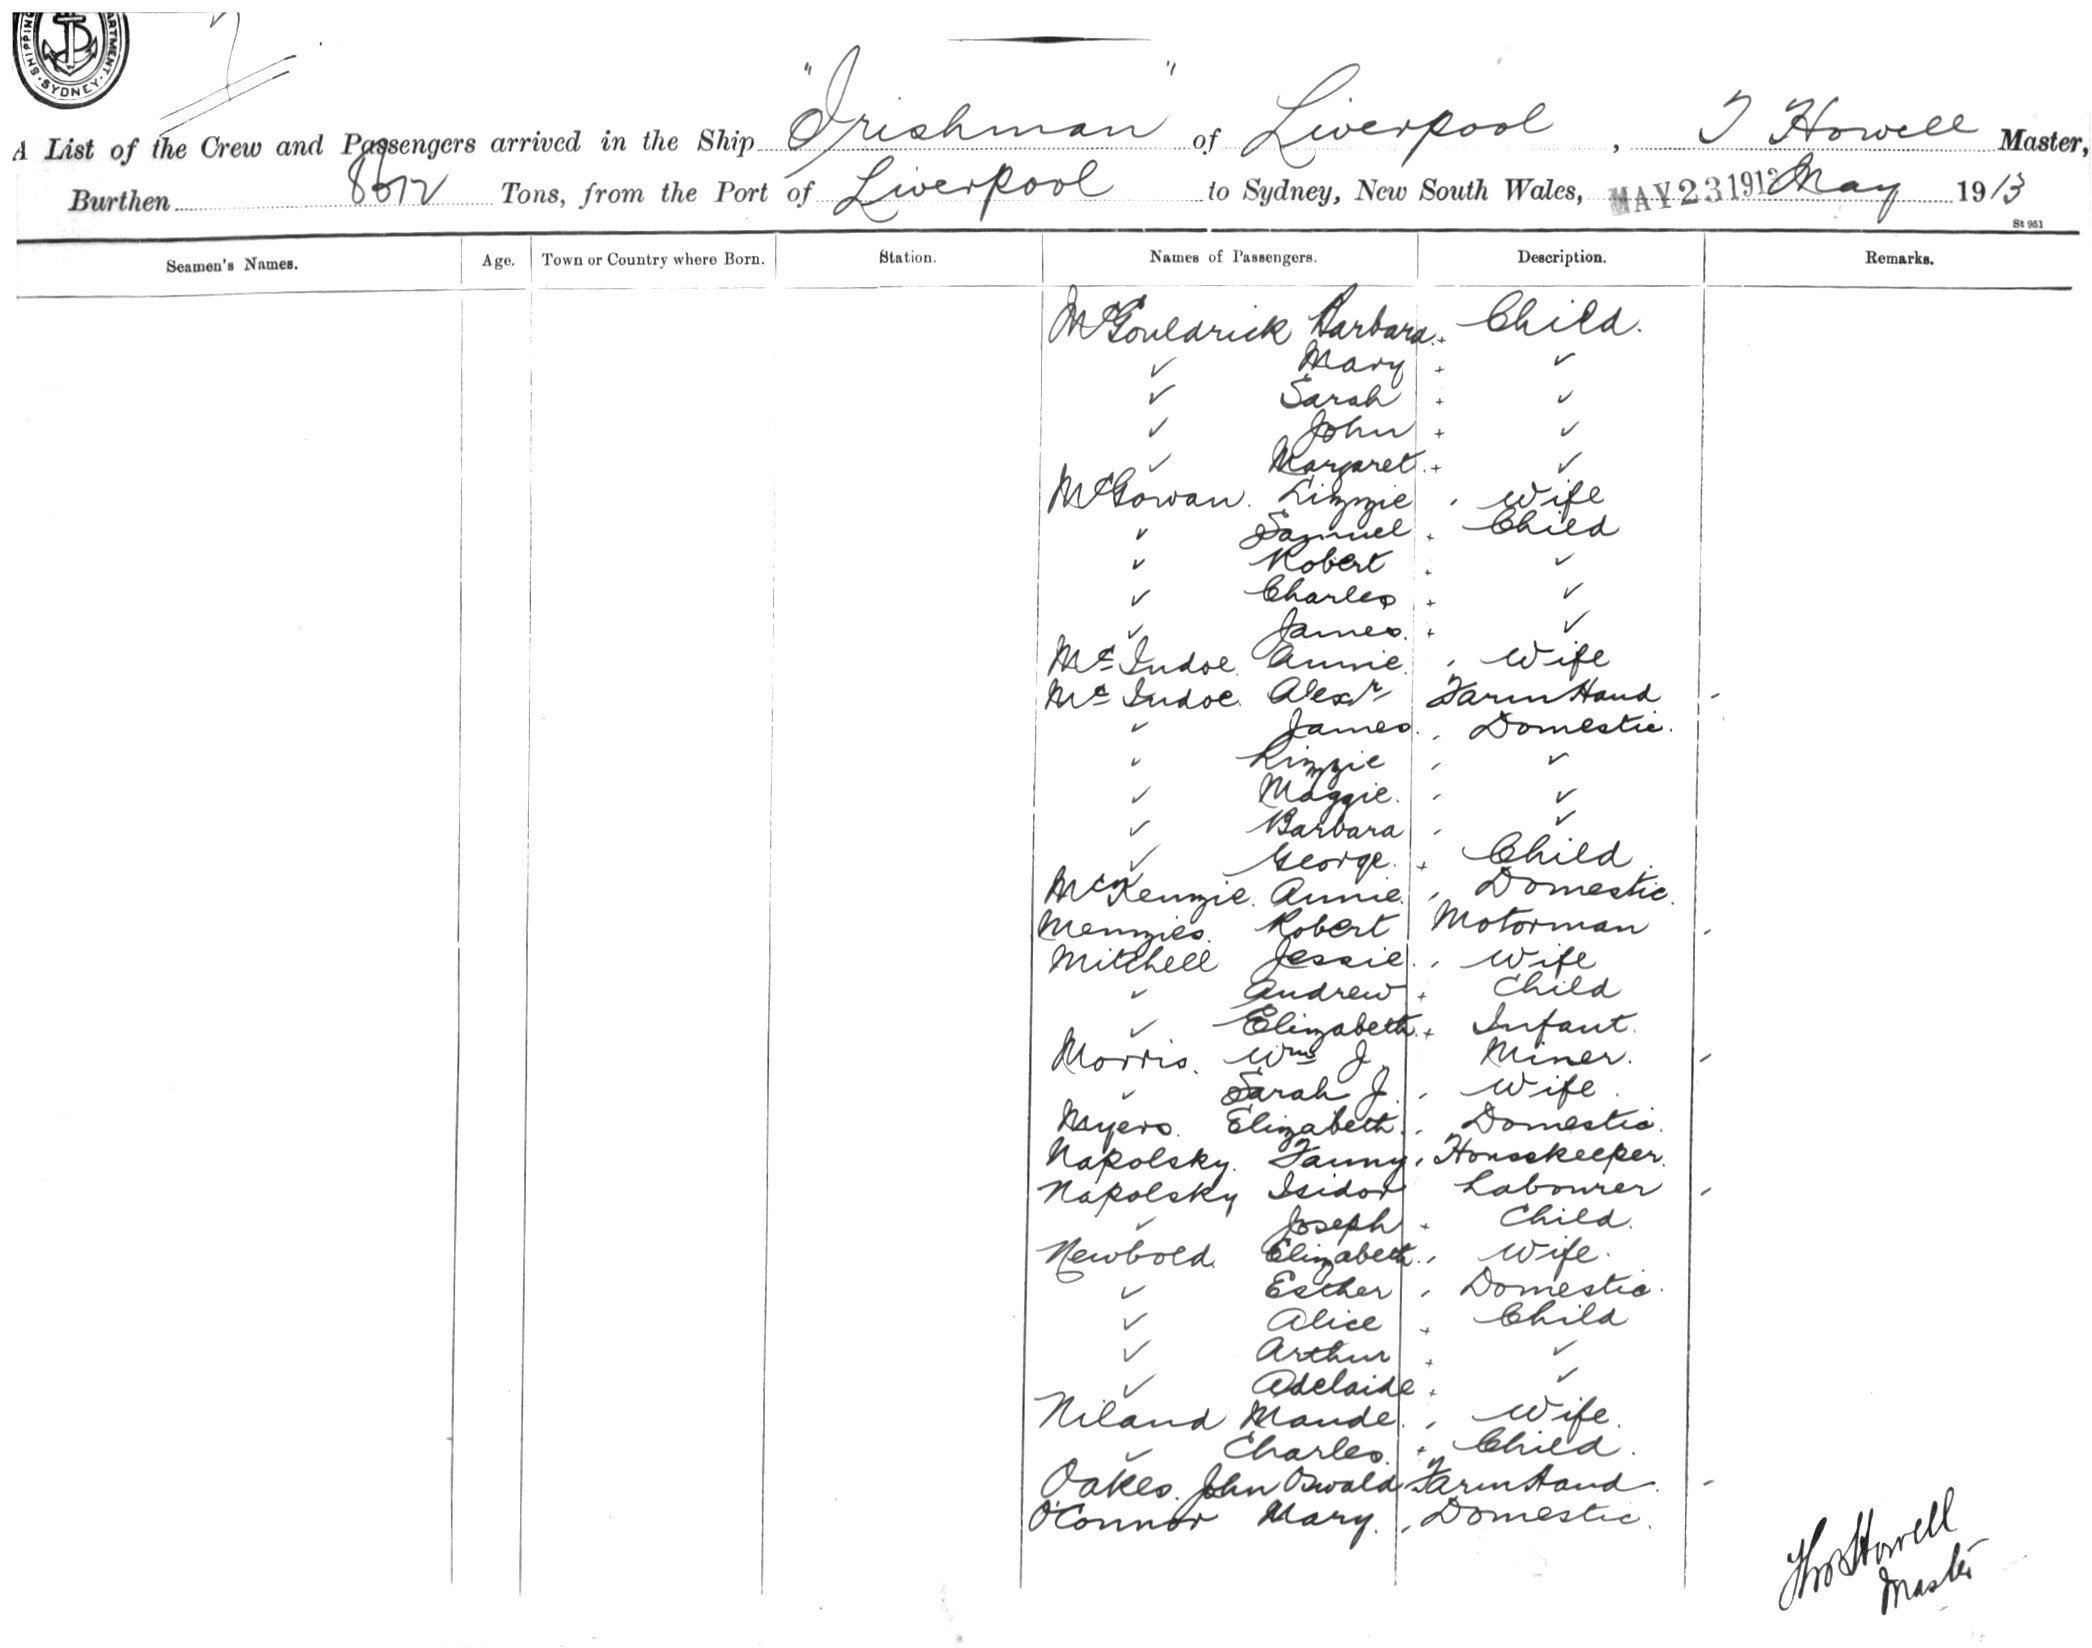 SHIPPING DEPARTMENT SYDNEY
7
A List of the Crew and Passengers arrived in the Ship "Irishman" of Liverpool, T Howell Master,
Burthen 8612 Tons, from the Port of Liverpool to Sydney, New South Wales, MAY 23 1913 May 1913
St 951
Seamen's Names. Age. Town or Country where Born. Station. Names of Passengers. Description. Remarks.
McGouldrick Barbara + Child.
✓ Mary + ✓
✓ Sarah + ✓
✓ John + ✓
✓ Margaret + ✓
McGowan. Lizzie , Wife
✓ Samuel + Child
✓ Robert . ✓
✓ Charles + ✓
✓ James. + ✓
Mc Indoe. Annie. , Wife
Mc Indoe. Alexr Farm Hand -
✓ James. , Domestic.
✓ Lizzie , ✓
✓ Maggie. , ✓
✓ Barbara , ✓
✓ George. + Child.
McKenzie. Annie. , Domestic.
Menzies. Robert Motorman -
Mitchell Jessie. , Wife
✓ Andrew + Child
✓ Elizabeth. + Infant.
Morris. Wm J. Miner. -
✓ Sarah J. , Wife.
Myers. Elizabeth. , Domestic.
Napolsky. Fanny , Housekeeper.
Napolsky Isidor Labourer -
✓ Joseph + Child.
Newbold. Elizabeth. , Wife.
✓ Esther , Domestic.
✓ Alice + Child
✓ Arthur + ✓
✓ Adelaide + ✓
Niland Maude. , Wife.
✓ Charles. + Child.
Oakes. John Oswald Farm Hand. -
O'Connor Mary. , Domestic.
Thos Howell
Master